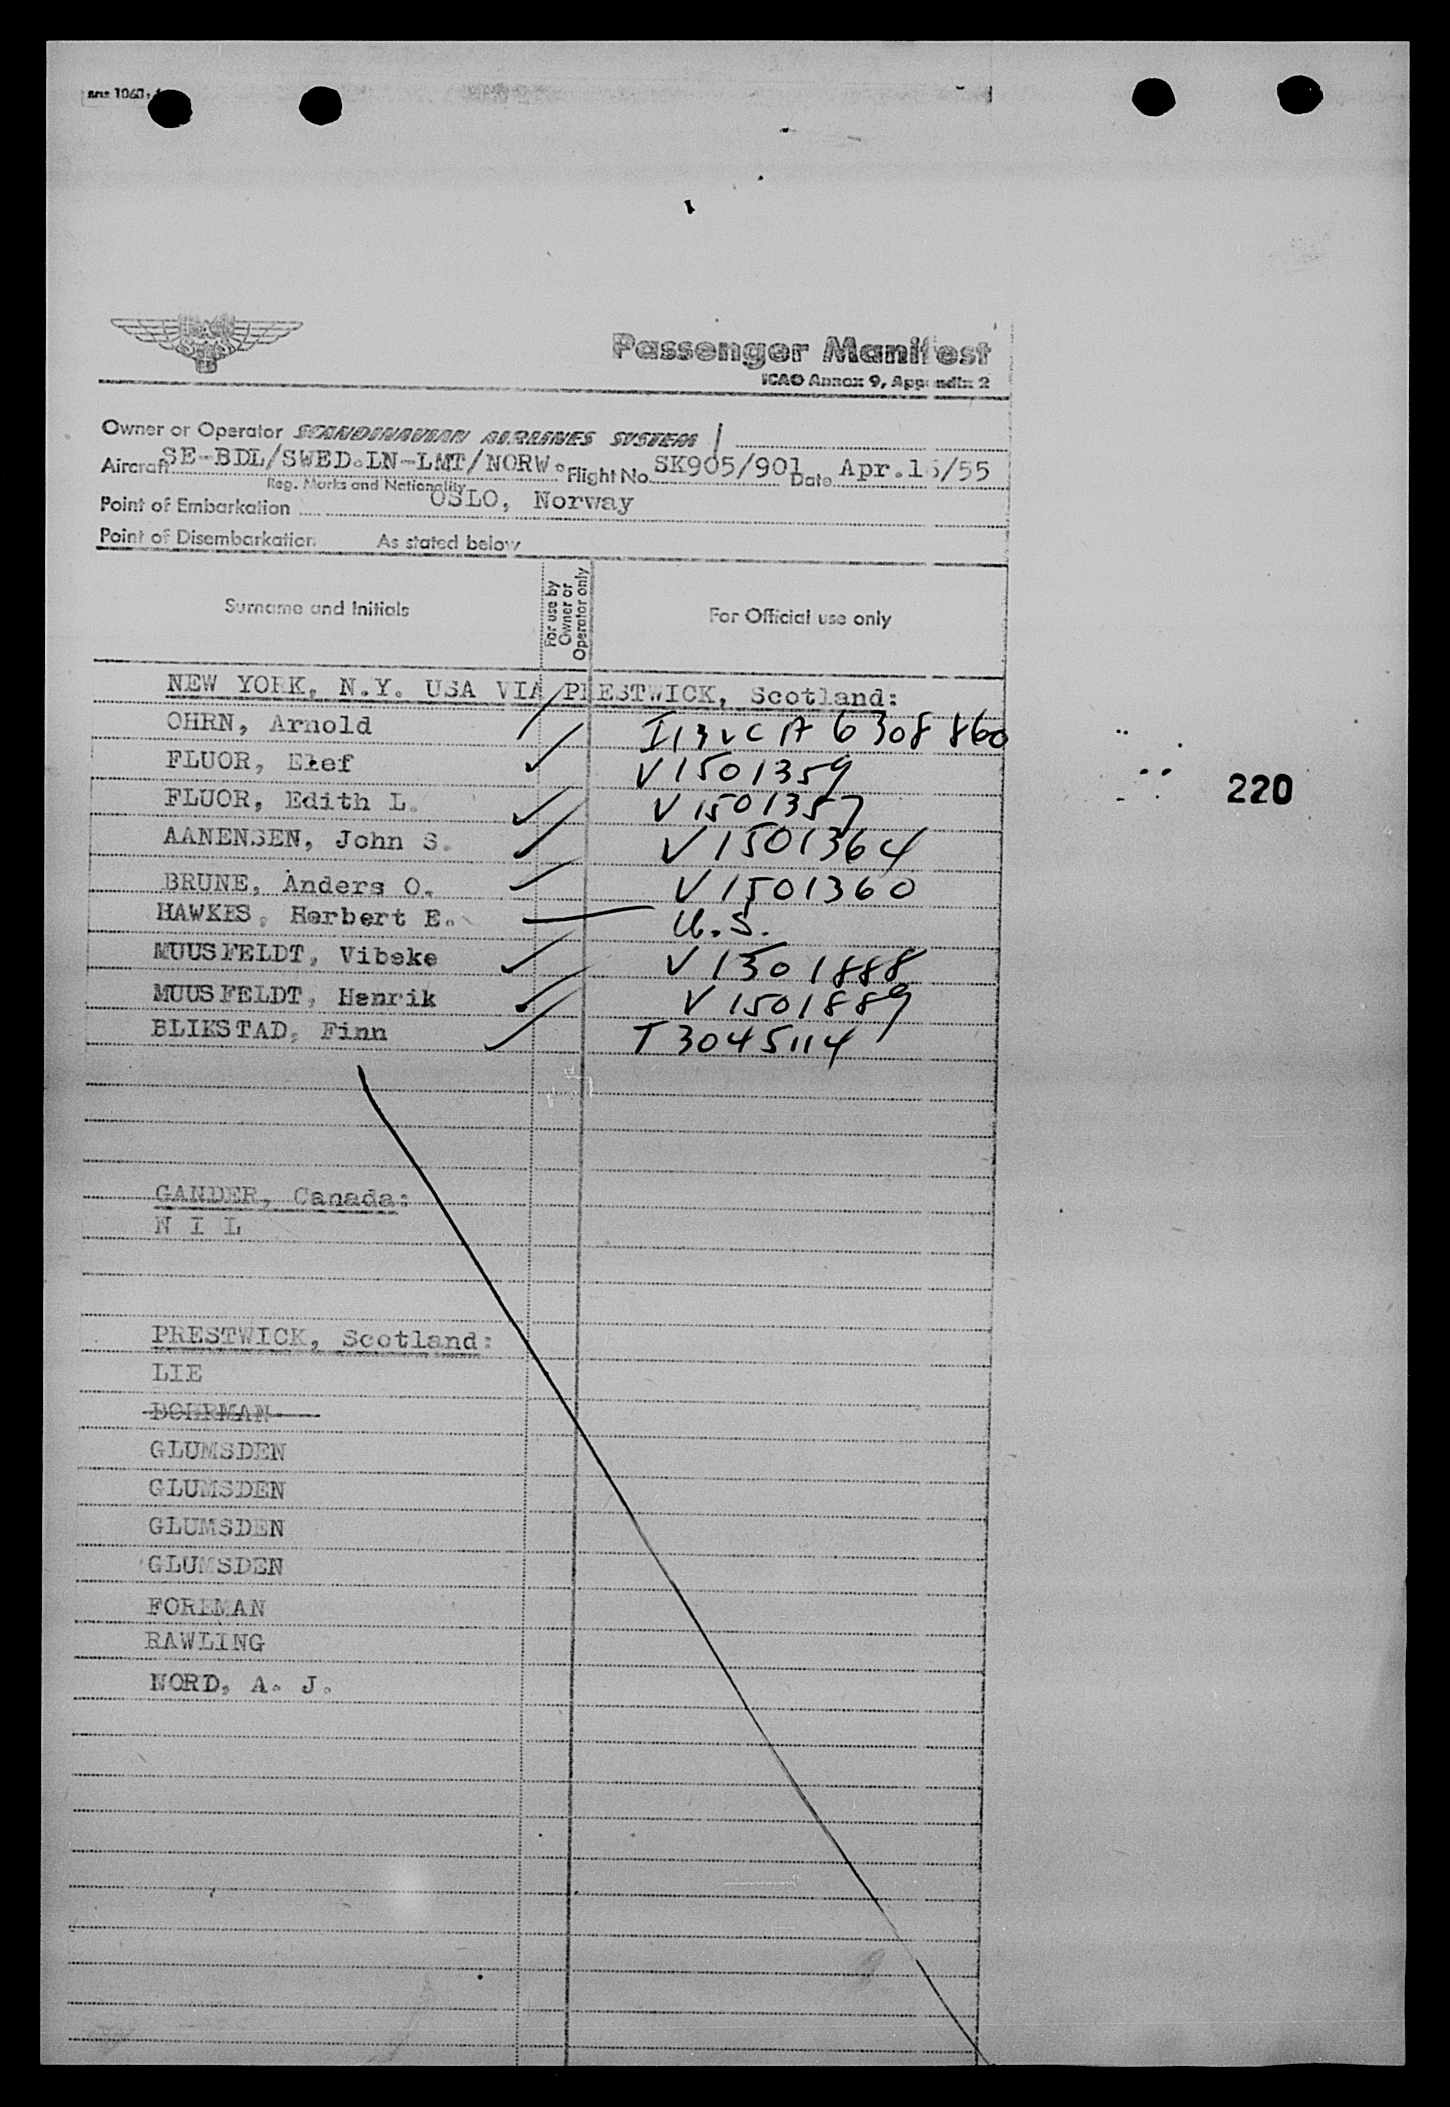 Passenger Manifest
ICAO Annex 9, Appendix 2
Owner or Operator SCANDINAVIAN AIRLINES SYSTEM
Aircraft SE-BDL/SWED.LN-LMT/NORW. Flight No. SK905/901 Date Apr.16/55
Reg. Marks and Nationality
Point of Embarkation OSLO, Norway
Point of Disembarkation As stated below
Surname and Initials For use by Owner or Operator only For Official use only
NEW YORK, N.Y. USA VIA PRESTWICK, Scotland:
OHRN, Arnold A 6308860
FLUOR, Elef V1501359
FLUOR, Edith L. V1501357
AANENSEN, John S. V1501364
BRUNE, Anders O. V1501360
HAWKES, Herbert E. U.S.
MUUSFELDT, Vibeke V1501888
MUUSFELDT, Henrik V1501889
BLIKSTAD, Finn T3045114
220
GANDER, Canada:
N I L
PRESTWICK, Scotland:
LIE
DOERMAN
GLUMSDEN
GLUMSDEN
GLUMSDEN
GLUMSDEN
FOREMAN
RAWLING
NORD, A. J.